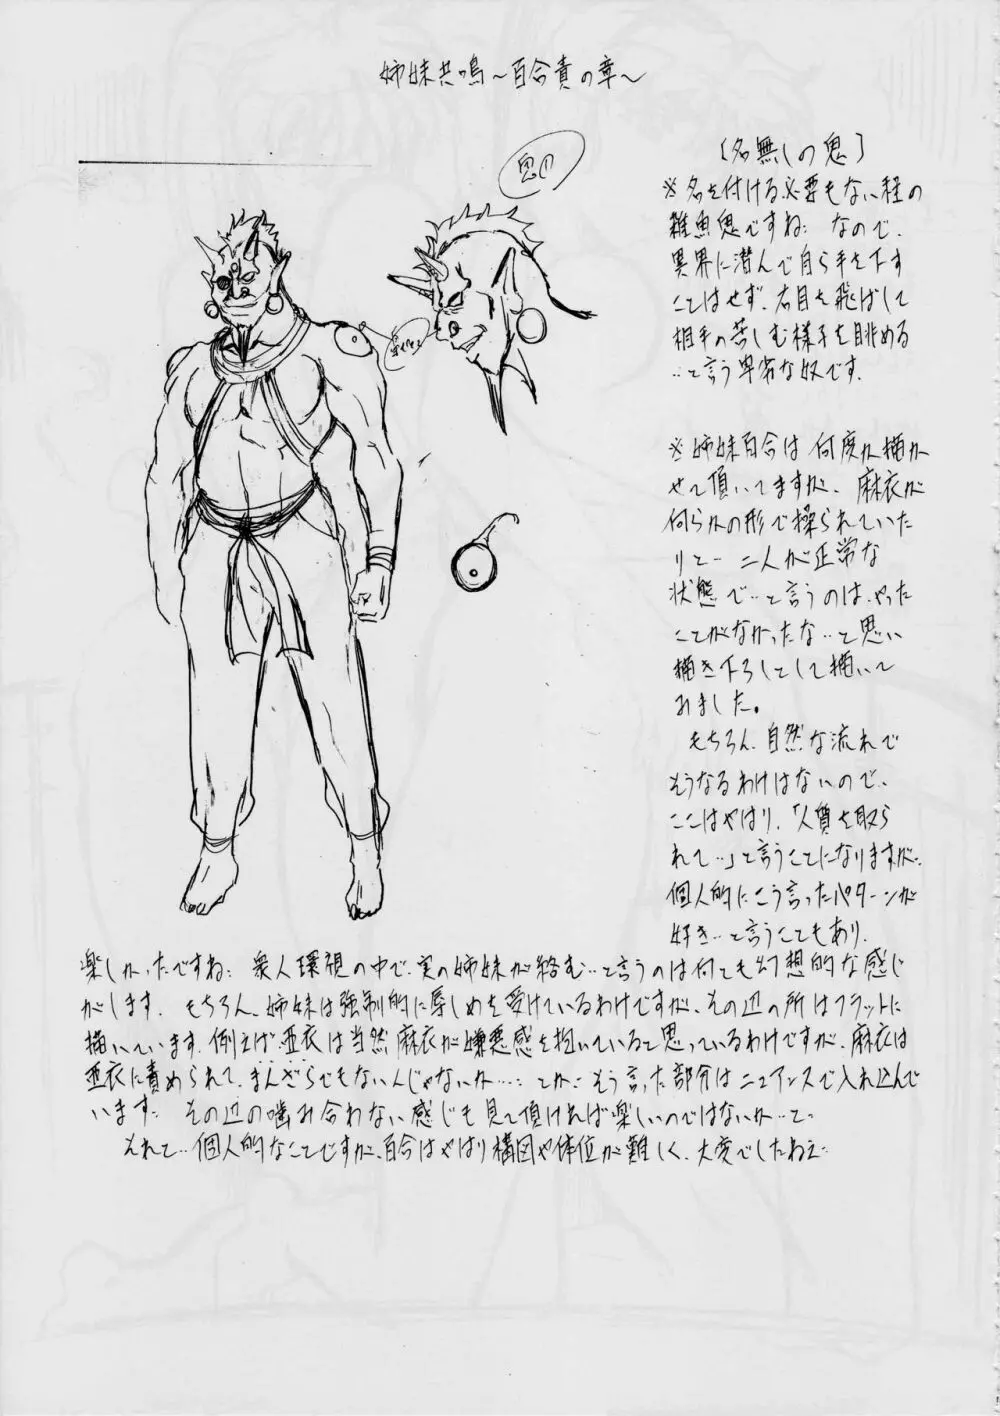 姉妹共鳴～百合責の章～
鬼①
[名無しの鬼]
※名を付ける必要もない程の
雑魚鬼ですね… なので、
異界に潜んで自ら手を下す
ことはせず、右目を飛ばして
相手の苦しむ様子を眺める
…と言う卑劣な奴です。
※姉妹百合は何度か描か
せて頂いてますが、麻衣が
何らかの形で操られていた
りと… 二人が正常な
状態で…と言うのは、やった
ことがなかったな…と思い
描き下ろしとして描いて
みました。
もちろん、自然な流れで
そうなるわけはないので、
ここはやはり、「人質を取ら
れて…」と言うことになりますが…
個人的にこう言ったパターンが
好き…と言うこともあり、
楽しかったですね… 衆人環視の中で、実の姉妹が絡む…と言うのは何とも幻想的な感じ
がします。 もちろん、姉妹は強制的に辱しめを受けているわけですが、その辺の所はフラットに
描いています。例えば、亜衣は当然麻衣が嫌悪感を抱いていると思っているわけですが、麻衣は
亜衣に責められて、まんざらでもないんじゃないか…… とか… そう言った部分はニュアンスで入れ込んで
います… その辺の噛み合わない感じも見て頂ければ楽しいのではないか…と…
それと…個人的なことですが、百合はやはり構図や体位が難しく、大変でしたねぇ…